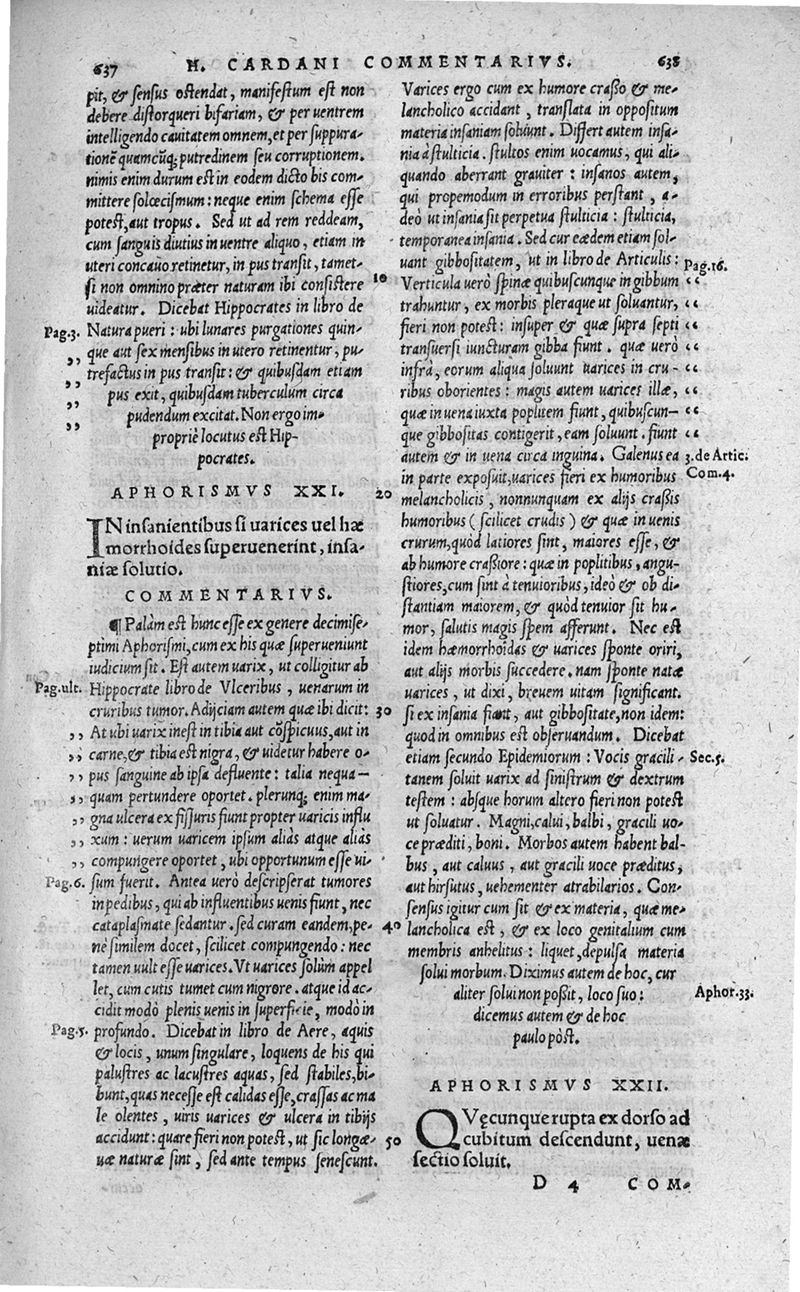 637 H. CARDANI COMMENTARIVS. 638
pit, & sensus ostendat, manifestum est non
debere distorqueri bifariam, & per uentrem
intelligendo cauitatem omnem, et per suppura-
tionẽ quamcũq; putredinem seu corruptionem.
nimis enim durum est in eodem dicto bis com-
mittere solœcismum: neque enim schema esse
potest, aut tropus. Sed ut ad rem reddeam,
cum sanguis diutius in uentre aliquo, etiam in
uteri concauo retinetur, in pus transit, tamet-
si non omnino præter naturam ibi consistere 10
uideatur. Dicebat Hippocrates in libro de
Pag.3. Natura pueri: ubi lunares purgationes quin-
,, que aut sex mensibus in utero retinentur, pu-
,, trefactus in pus transit: & quibusdam etiam
,, pus exit, quibusdam tuberculum circa
,, pudendum excitat. Non ergo im-
propriè locutus est Hip-
pocrates.
APHORISMVS XXI. 20
IN insanientibus si uarices uel hæ
morrhoides superuenerint, insa-
niæ solutio.
COMMENTARIVS.
¶ Palàm est hunc esse ex genere decimise-
ptimi Aphorismi, cum ex his quæ superueniunt
iudicium sit. Est autem uarix, ut colligitur ab
Pag.ult. Hippocrate libro de Vlceribus, uenarum in
cruribus tumor. Adijciam autem quæ ibi dicit: 30
,, At ubi uarix inest in tibia aut cõspicuus, aut in
,, carne, & tibia est nigra, & uidetur habere o-
,, pus sanguine ab ipsa defluente: talia nequa-
,, quam pertundere oportet. plerunq; enim ma-
,, gna ulcera ex fissuris fiunt propter uaricis influ
,, xum: uerum uaricem ipsum aliàs atque alias
,, compungere oportet, ubi opportunum esse ui-
Pag.6. sum fuerit. Antea uerò descripserat tumores
in pedibus, qui ab influentibus uenis fiunt, nec
cataplasmate sedantur. sed curam eandem, pe- 40
nè similem docet, scilicet compungendo: nec
tamen uult esse uarices. Vt uarices solùm appel
let, cum cutis tumet cum nigrore. atque id ac-
cidit modò plenis uenis in superficie, modò in
Pag.5. profundo. Dicebat in libro de Aere, aquis
& locis, unum singulare, loquens de his qui
palustres ac lacustres aquas, sed stabiles, bi-
bunt, quas necesse est calidas esse, crassas ac ma
le olentes, uiris uarices & ulcera in tibijs
accidunt: quare fieri non potest, ut sic longæ- 50
uæ naturæ sint, sed ante tempus senescunt.
Varices ergo cum ex humore crasso & me-
lancholico accidant, translata in oppositum
materia insaniam soluunt. Differt autem insa-
nia à stulticia. stultos enim uocamus, qui ali-
quando aberrant grauiter: insanos autem,
qui propemodum in erroribus perstant, a-
deò ut insania sit perpetua stulticia: stulticia,
temporanea insania. Sed cur eædem etiam sol-
uant gibbositatem, ut in libro de Articulis: Pag.16.
Verticula uerò spinæ quibuscunque in gibbum “
trahuntur, ex morbis pleraque ut soluantur, “
fieri non potest: insuper & quæ supra septi “
transuersi iuncturam gibba fiunt. quæ uerò “
infrà, eorum aliqua soluunt uarices in cru- “
ribus oborientes: magis autem uarices illæ, “
quæ in uena iuxta poplitem fiunt, quibuscun- “
que gibbositas contigerit, eam soluunt. fiunt “
autem & in uena circa inguina. Galenus ea 3. de Artic.
in parte exposuit, uarices fieri ex humoribus Com.4.
melancholicis, nonnunquam ex alijs crassis
humoribus (scilicet crudis) & quæ in uenis
crurum, quòd latiores sint, maiores esse, &
ab humore crassiore: quæ in poplitibus, angu-
stiores, cum sint à tenuioribus, ideò & ob di-
stantiam maiorem, & quòd tenuior sit hu-
mor, salutis magis spem afferunt. Nec est
idem hæmorrhoidas & uarices sponte oriri,
aut alijs morbis succedere. nam sponte natæ
uarices, ut dixi, breuem uitam significant.
si ex insania fiant, aut gibbositate, non idem:
quod in omnibus est obseruandum. Dicebat
etiam secundo Epidemiorum: Vocis gracili- Sec.5.
tanem soluit uarix ad sinistrum & dextrum
testem: absque horum altero fieri non potest
ut soluatur. Magni, calui, balbi, gracili uo-
ce præditi, boni. Morbos autem habent bal-
bus, aut caluus, aut gracili uoce præditus,
aut hirsutus, uehementer atrabilarios. Con-
sensus igitur cum sit & ex materia, quæ me-
lancholica est, & ex loco genitalium cum
membris anhelitus: liquet, depulsa materia
solui morbum. Diximus autem de hoc, cur
aliter solui non possit, loco suo: Aphor.33.
dicemus autem & de hoc
paulo pòst.
APHORISMVS XXII.
QVęcunque rupta ex dorso ad
cubitum descendunt, uenæ
sectio soluit.
D 4 COM-